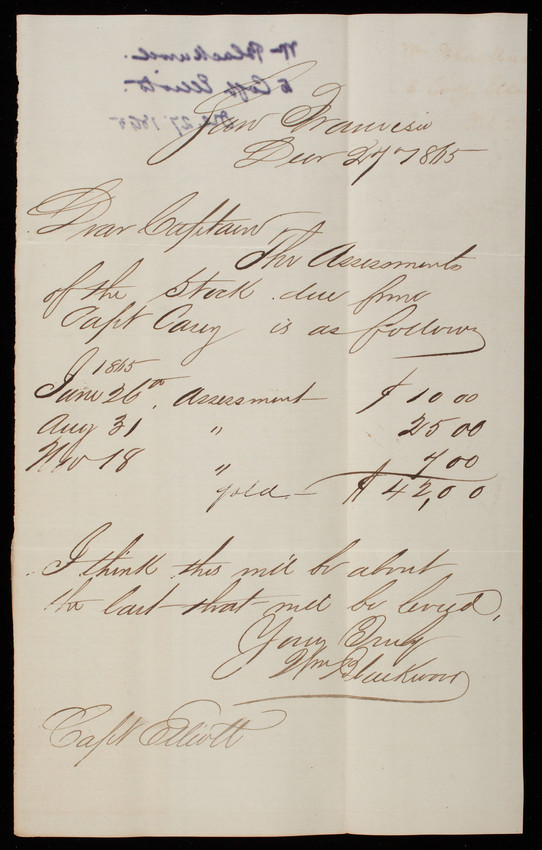 Wm Blackwood.
to Capt Elliott
Dec 27, 1865
San Francisco
Decr 27th 1865
Dear Captain
The Assessments
of the Stock due from
Capt Casey is as follows
1865
June 26th. Assessment $ 10 00
Aug 31 " 25 00
Nov 18 " 7 00
gold — $ 42,00
I think this will be about
the last that will be levied,
Yours Truly
Wm Blackwood
Capt Elliott